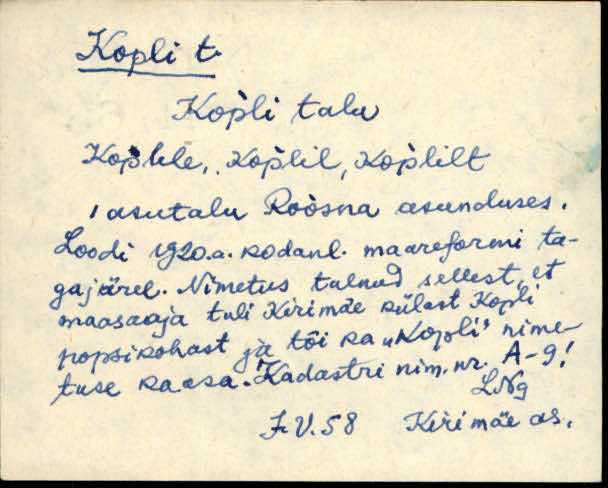 Kopli t.
Kop̀li talu
Kop̀lile, Kop̀lil, Kop̀lilt
1 asutalu Roòsna asunduses.
Loodi 1920.a. kodanl. maareformi ta-
gajärel. Nimetus tulnud sellest, et
maasaaja tuli Kirimäe külast Kopli
popsikohast ja tõi ka „Kopli" nime-
tuse kaasa. Kadastri nim. nr. A-9!
LNg
V.58 Kirimäe as.